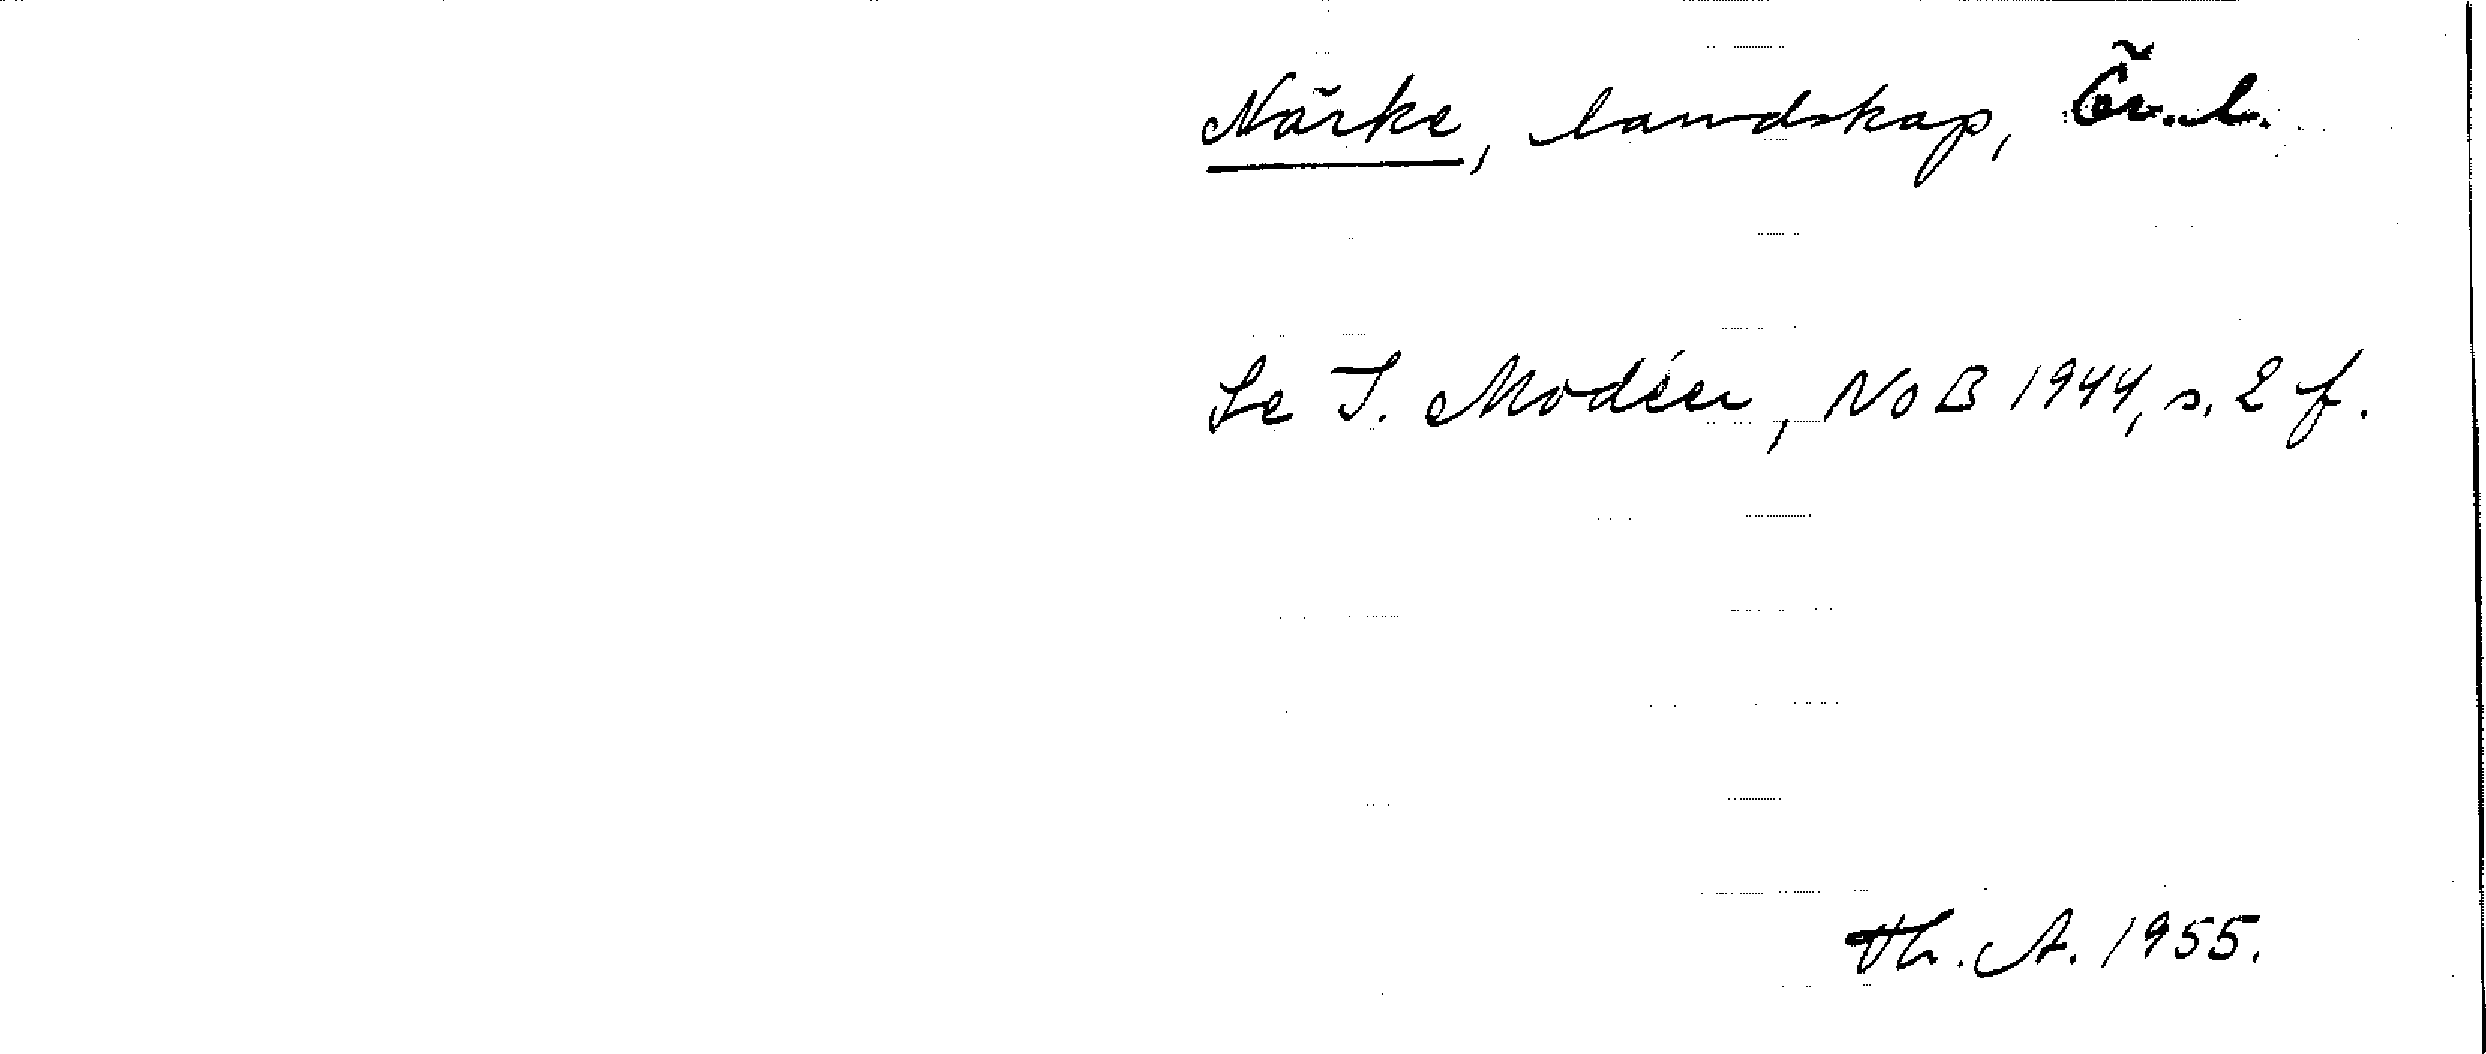 Närke, landskap, Ör. l.
Se I. Modéer, NoB 1944, s. 2 f.
Th. A. 1955.